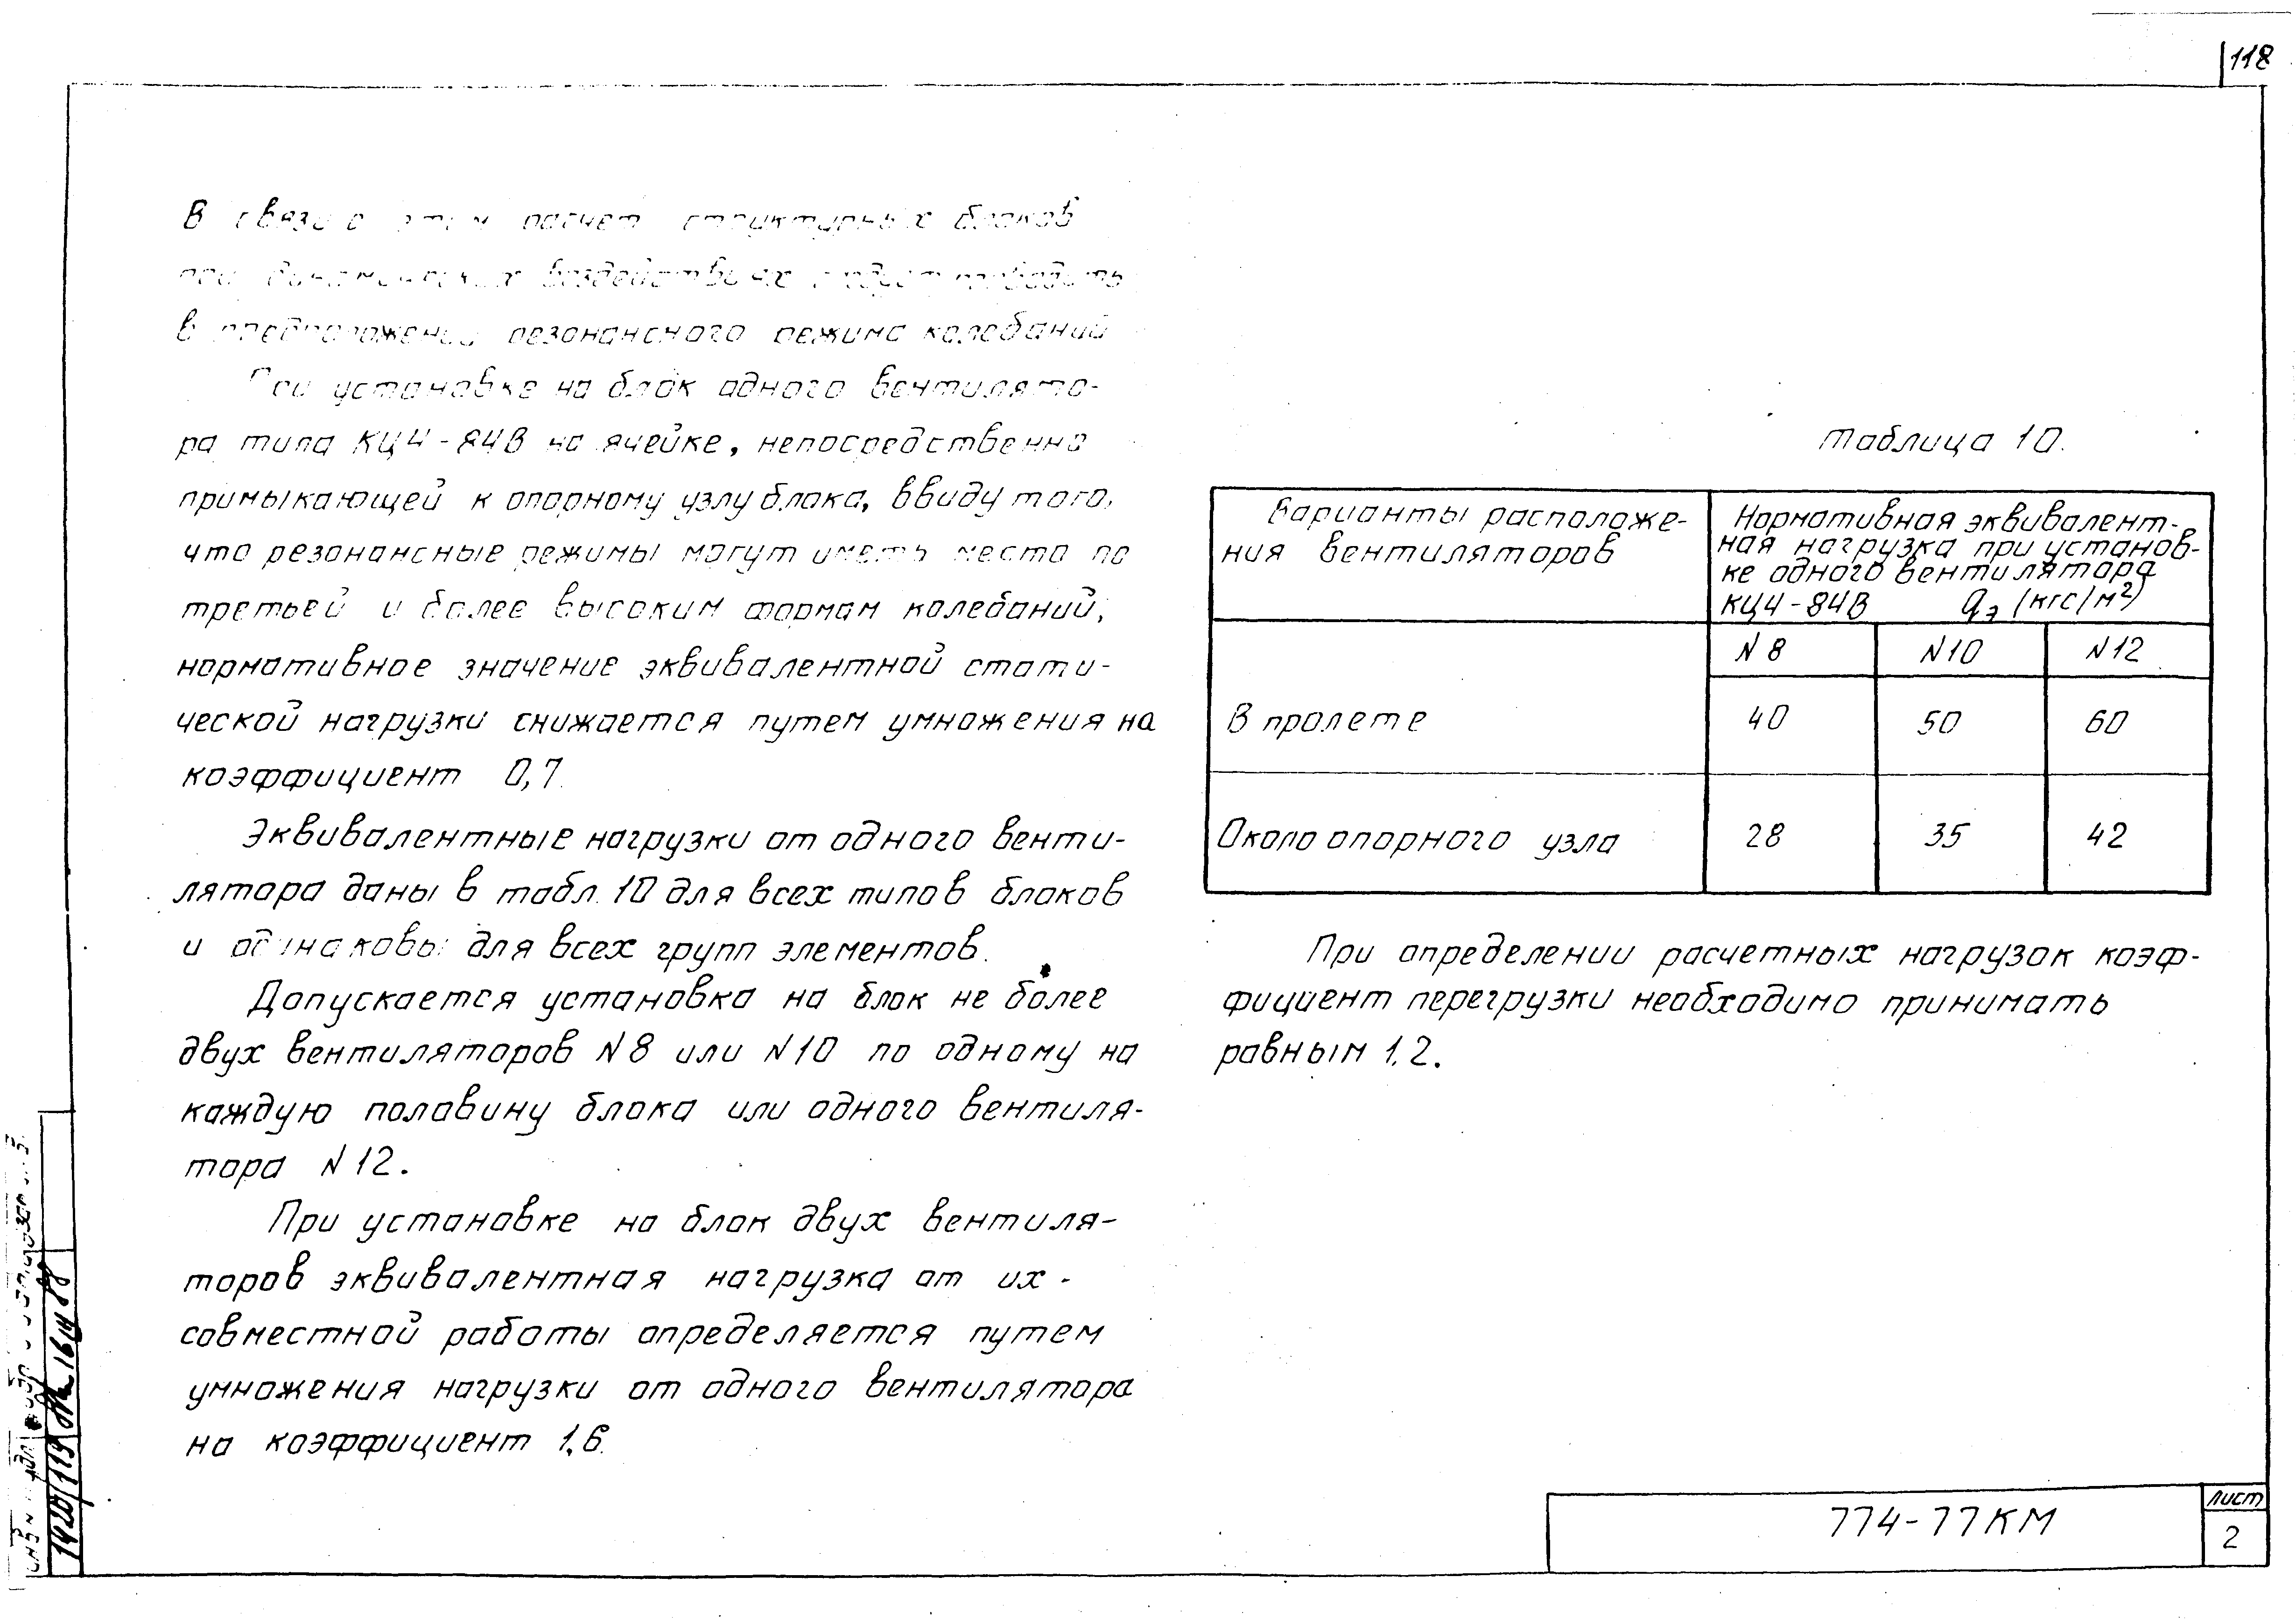 118
В связи с этим расчет структурных блоков
при динамических воздействиях следует проводить
в предположении резонансного режима колебаний
При установке на блок одного вентилято-
ра типа КЦ4-84В на ячейке, непосредственно
примыкающей к опорному узлу блока, ввиду того,
что резонансные режимы могут иметь место по
третьей и более высоким формам колебаний,
нормативное значение эквивалентной стати-
ческой нагрузки снижается путем умножения на
коэффициент 0,7.
Эквивалентные нагрузки от одного венти-
лятора даны в табл. 10 для всех типов блоков
и одинаковы для всех групп элементов.
Допускается установка на блок не более
двух вентиляторов N8 или N10 по одному на
каждую половину блока или одного вентиля-
тора N12.
При установке на блок двух вентиля-
торов эквивалентная нагрузка от их
совместной работы определяется путем
умножения нагрузки от одного вентилятора
на коэффициент 1,6.
Таблица 10.
Варианты расположе-
ния вентиляторов
Нормативная эквивалент-
ная нагрузка при установ-
ке одного вентилятора
КЦ4-84В qэ (кгс/м²)
N8 N10 N12
В пролете 40 50 60
Около опорного узла 28 35 42
При определении расчетных нагрузок коэф-
фициент перегрузки необходимо принимать
равным 1.2.
774-77КМ
Лист
2